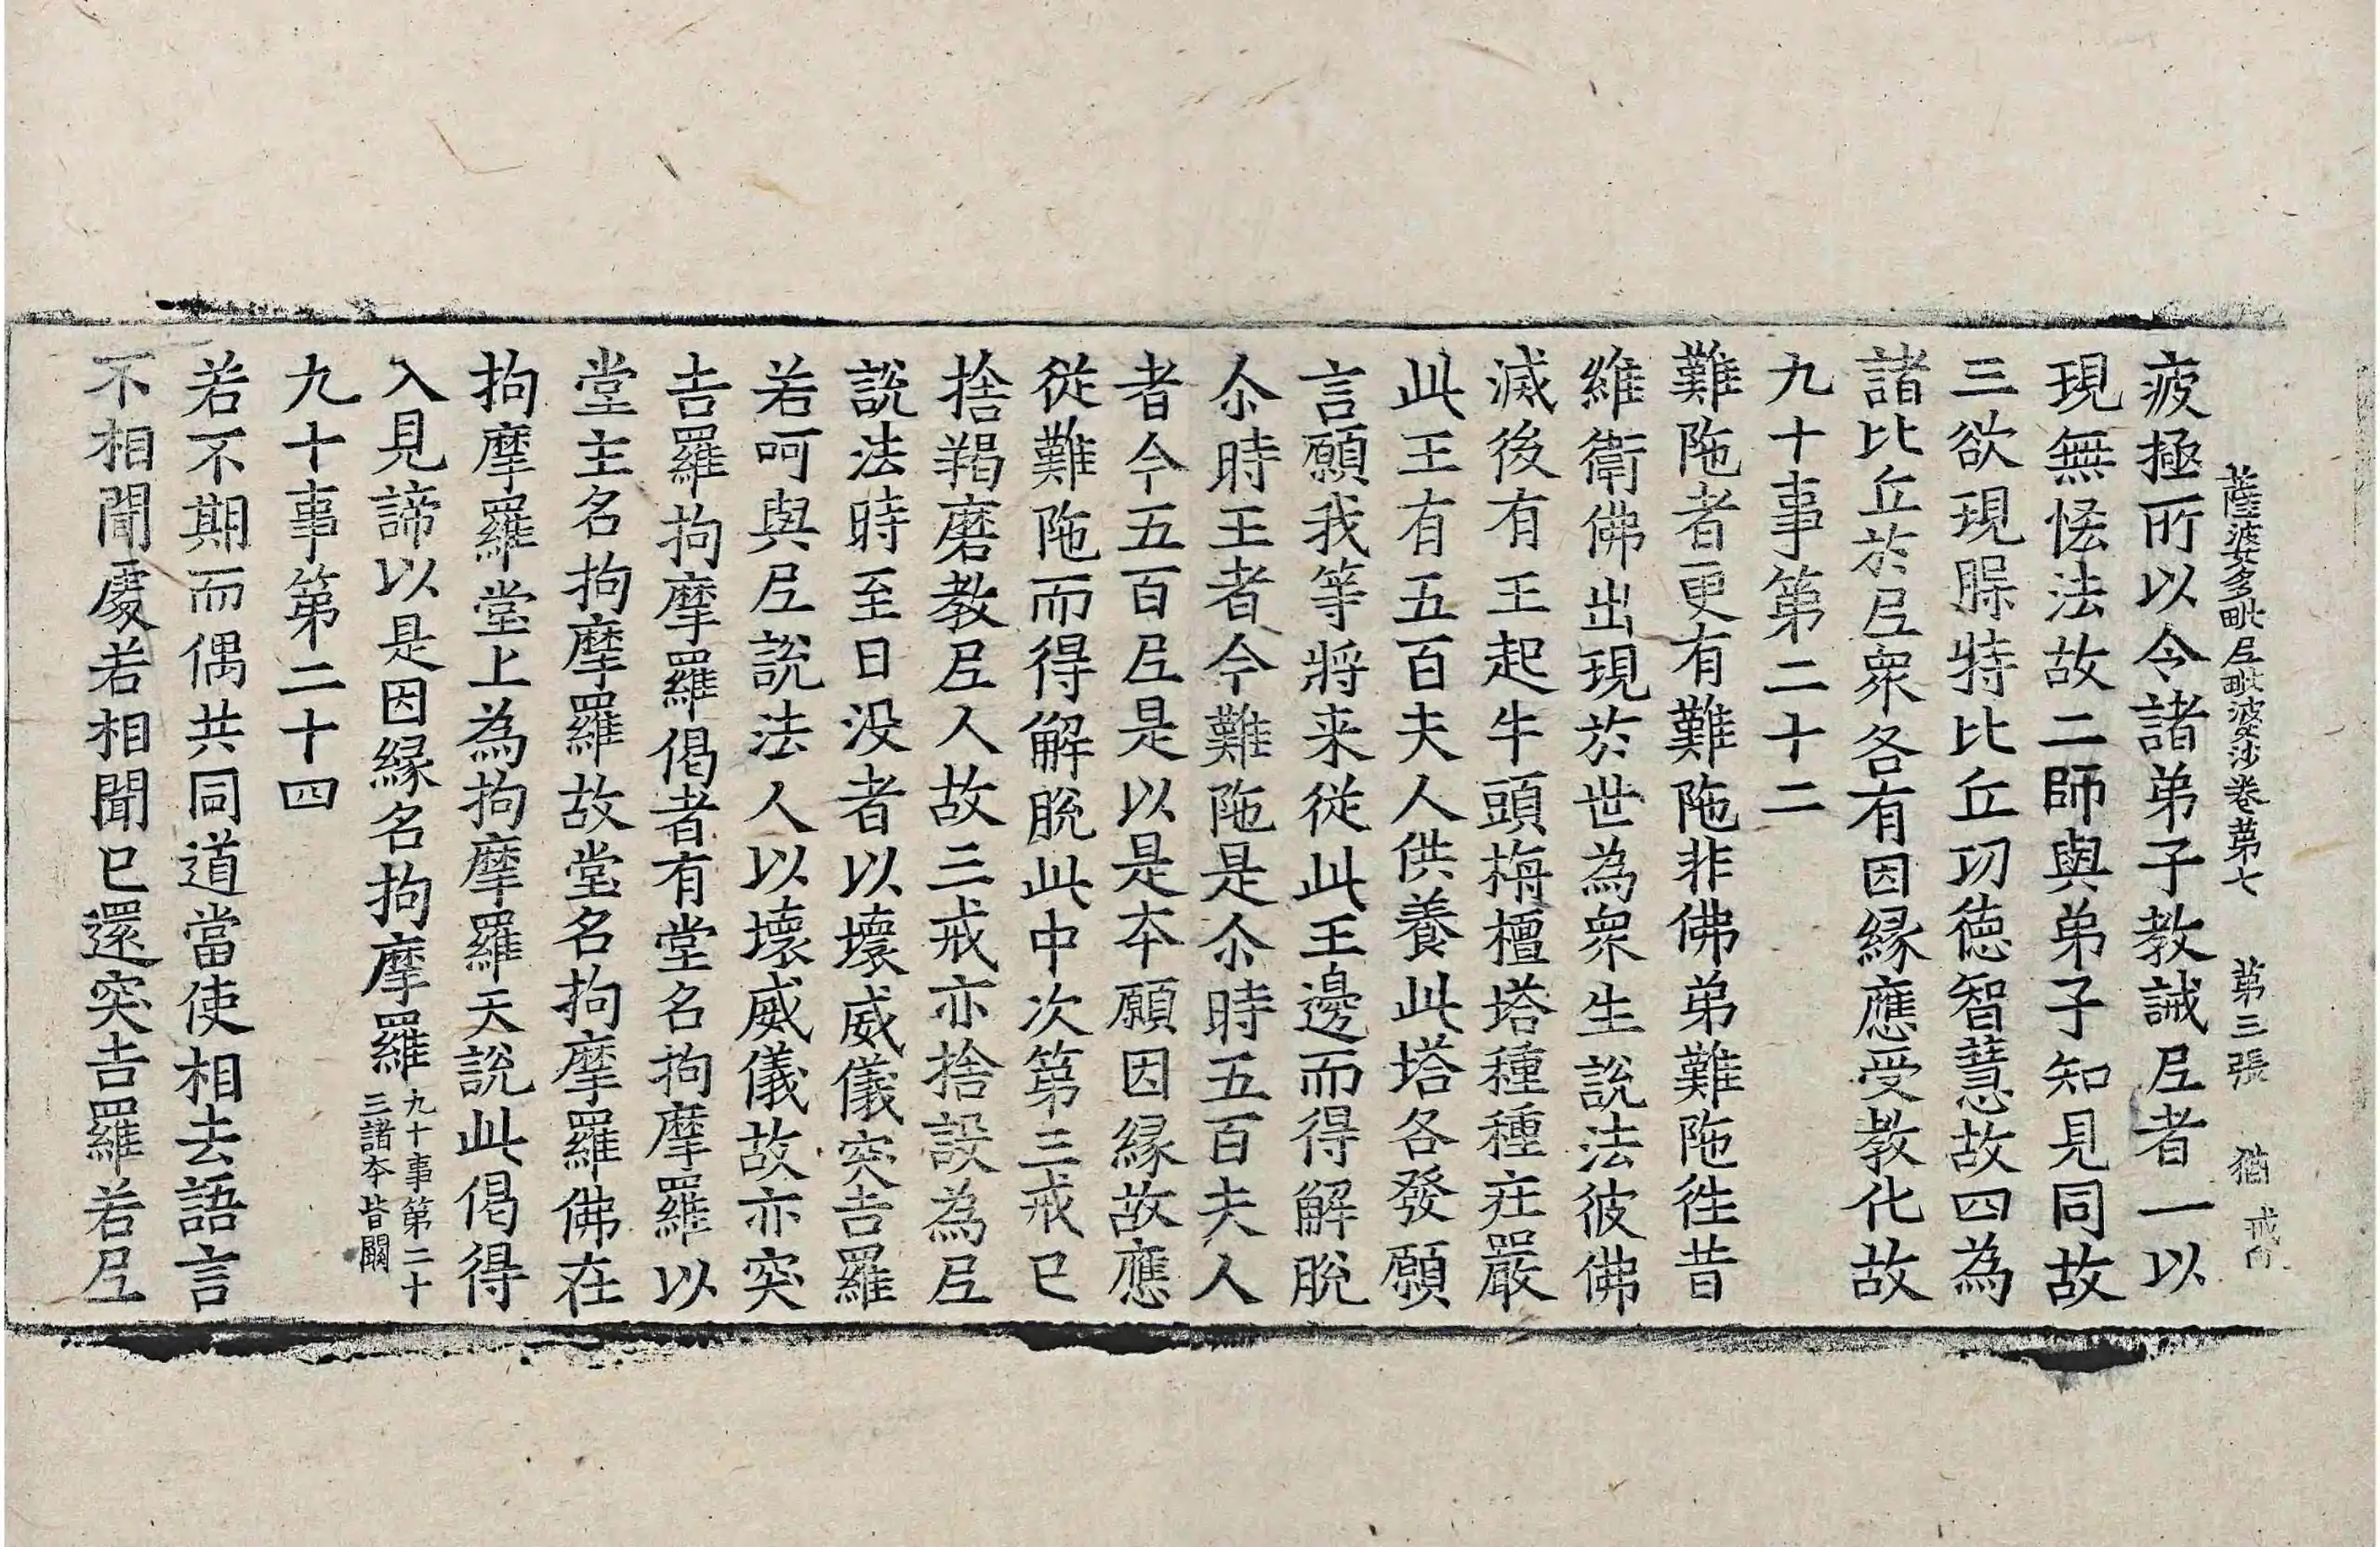 薩婆多毗尼毗婆沙卷第七 第三張 猶 戒
疲極所以令諸弟子教誡尼者一以
現無恡法故二師與弟子知見同故
三欲現䏶特比丘功德智慧故四為
諸比丘於尼衆各有因緣應受教化故
九十事第二十二
難陁者更有難陁非佛弟難陁徃昔
維衛佛出現於世為衆生說法彼佛
滅後有王起牛頭栴檀塔種種庄嚴
此王有五百夫人供養此塔各發願
言願我等將来從此王邊而得解脫
尒時王者今難陁是尒時五百夫人
者今五百尼是以是本願因緣故應
從難陁而得解脫此中次第三戒已
捨羯磨教尼人故三戒亦捨設為尼
說法時至日没者以壞威儀突吉羅
若呵與尼說法人以壞威儀故亦突
吉羅拘摩羅偈者有堂名拘摩羅以
堂主名拘摩羅故堂名拘摩羅佛在
拘摩羅堂上為拘摩羅天說此偈得
入見諦以是因緣名拘摩羅九十事第二十
三諸本皆闕
九十事第二十四
若不期而偶共同道當使相去語言
不相聞處若相聞已還突吉羅若尼